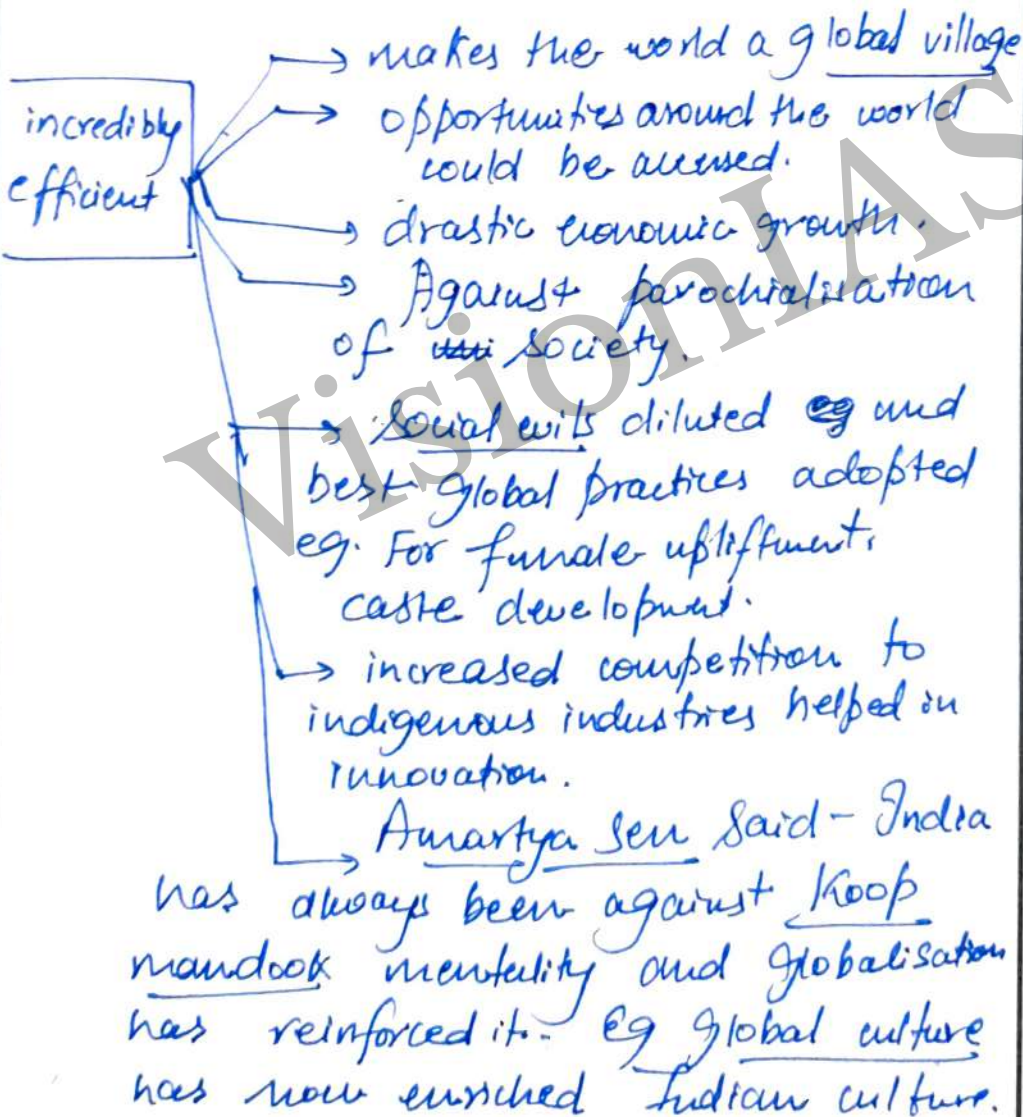 incredibly
efficient
→ makes the world a global village
→ opportunities around the world
could be accessed.
→ drastic economic growth.
→ Against parochialisation
of society.
→ Social evils diluted and
best global practices adopted
eg. For female upliftment,
caste development.
→ increased competition to
indigenous industries helped in
innovation.
→ Amartya Sen Said - India
has always been against Koop
mandook mentality and globalisation
has reinforced it. Eg global culture
has now enriched Indian culture.
VisionIAS